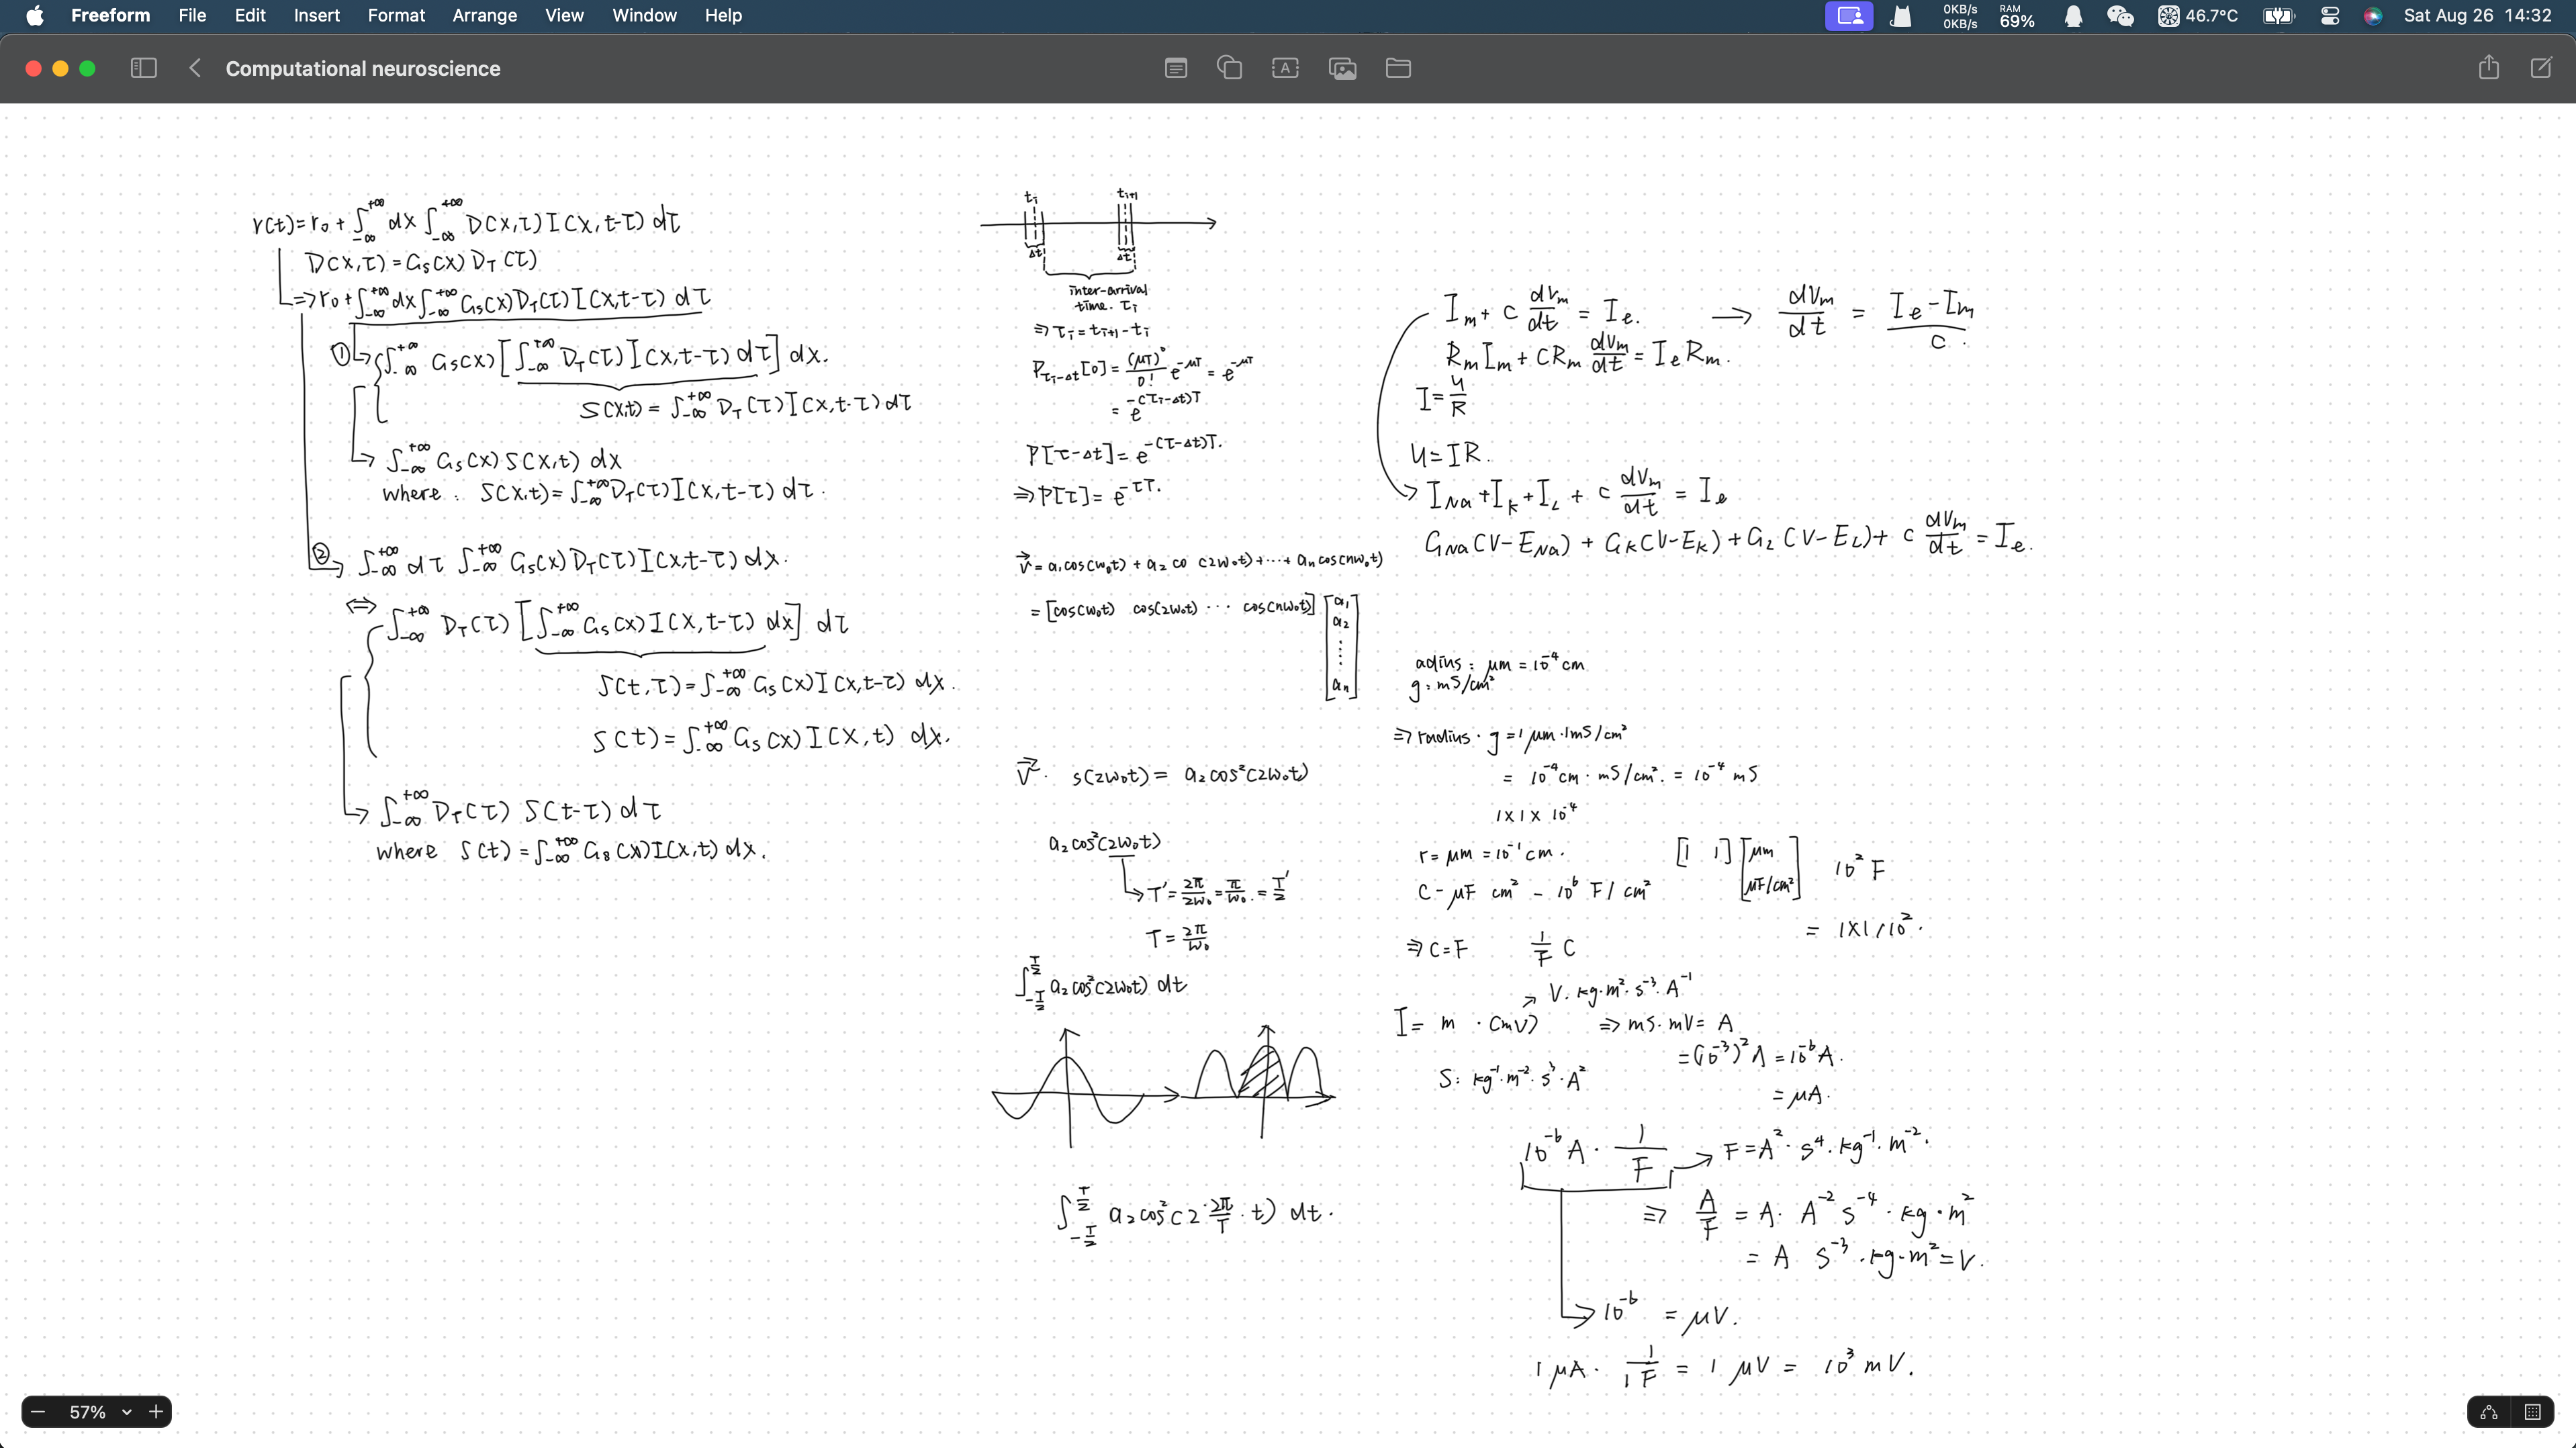 Freeform File Edit Insert Format Arrange View Window Help
0KB/s 0KB/s RAM 69% 46.7°C Sat Aug 26 14:32
Computational neuroscience
r(t)=r₀+∫₋∞^+∞ dx ∫₋∞^+∞ D(x,τ)I(x,t-τ)dτ
D(x,τ)=Gs(x)D_T(τ)
⇒r₀+∫₋∞^+∞dx∫₋∞^+∞ Gs(x)D_T(τ)I(x,t-τ)dτ
① ∫₋∞^+∞ Gs(x)[∫₋∞^+∞ D_T(τ)I(x,t-τ)dτ]dx.
S(x,t)=∫₋∞^+∞ D_T(τ)I(x,t-τ)dτ
→ ∫₋∞^+∞ Gs(x)S(x,t)dx
where: S(x,t)=∫₋∞^+∞D_T(τ)I(x,t-τ)dτ.
② → ∫₋∞^+∞ dτ ∫₋∞^+∞ Gs(x)D_T(τ)I(x,t-τ)dx.
⇔ ∫₋∞^+∞ D_T(τ)[∫₋∞^+∞ Gs(x)I(x,t-τ)dx]dτ
S(t,τ)=∫₋∞^+∞ Gs(x)I(x,t-τ)dx.
S(t)=∫₋∞^+∞ Gs(x)I(x,t)dx.
→ ∫₋∞^+∞ D_T(τ) S(t-τ)dτ
where S(t)=∫₋∞^+∞ Gs(x)I(x,t)dx.
tᵢ tᵢ₊₁
Δt Δt
inter-arrival
time. τᵢ
⇒τᵢ=tᵢ₊₁-tᵢ
P_{τᵢ-Δt}[0]=(μT)⁰/0! e^{-μT}=e^{-μT}
= e^{-(τᵢ-Δt)T}
P[τ-Δt]=e^{-(τ-Δt)T}.
⇒P[τ]=e^{-τT}.
v⃗=a₁cos(w₀t)+a₂co (2w₀t)+⋯+aₙcos(nw₀t)
=[cos(w₀t) cos(2w₀t) ⋯ cos(nw₀t)][a₁ a₂ ⋮ aₙ]
v⃗. s(2w₀t)= a₂cos²(2w₀t)
a₂cos²(2w₀t)
→T'=2π/2w₀=π/w₀.=T'/2
T=2π/w₀
∫_{-T/2}^{T/2} a₂cos²(2w₀t)dt
∫_{-T/2}^{T/2} a₂cos²(2·2π/T·t)dt.
Iₘ+C dVₘ/dt=Iₑ. → dVₘ/dt = (Iₑ-Iₘ)/C.
RₘIₘ+CRₘ dVₘ/dt=IₑRₘ.
I=U/R
U=IR.
I_Na+I_K+I_L+C dVₘ/dt=Iₑ
G_Na(V-E_Na)+G_K(V-E_K)+G_L(V-E_L)+C dVₘ/dt=Iₑ.
adius: μm=10⁻⁴cm
g: mS/cm²
⇒radius·g=1μm·1mS/cm²
= 10⁻⁴cm·mS/cm².=10⁻⁴mS
1×1×10⁻⁴
r=μm=10⁻¹cm.
C-μF cm² - 10⁶ F/cm²
[1 1][μm μF/cm²] 10² F
= 1×1/10².
⇒C=F 1/F C
↗ V. kg·m²·s⁻³·A⁻¹
I= m ·(mV) ⇒mS·mV=A
=(10⁻³)²A=10⁻⁶A.
S: kg⁻¹·m⁻²·s³·A²
=μA.
10⁻⁶A·1/F → F=A²·s⁴·kg⁻¹·m⁻².
⇒ A/F = A·A⁻²s⁻⁴·kg·m²
= A s⁻³·kg·m²=V.
→10⁻⁶ =μV.
1μA·1/1F = 1 μV = 10³mV.
57%